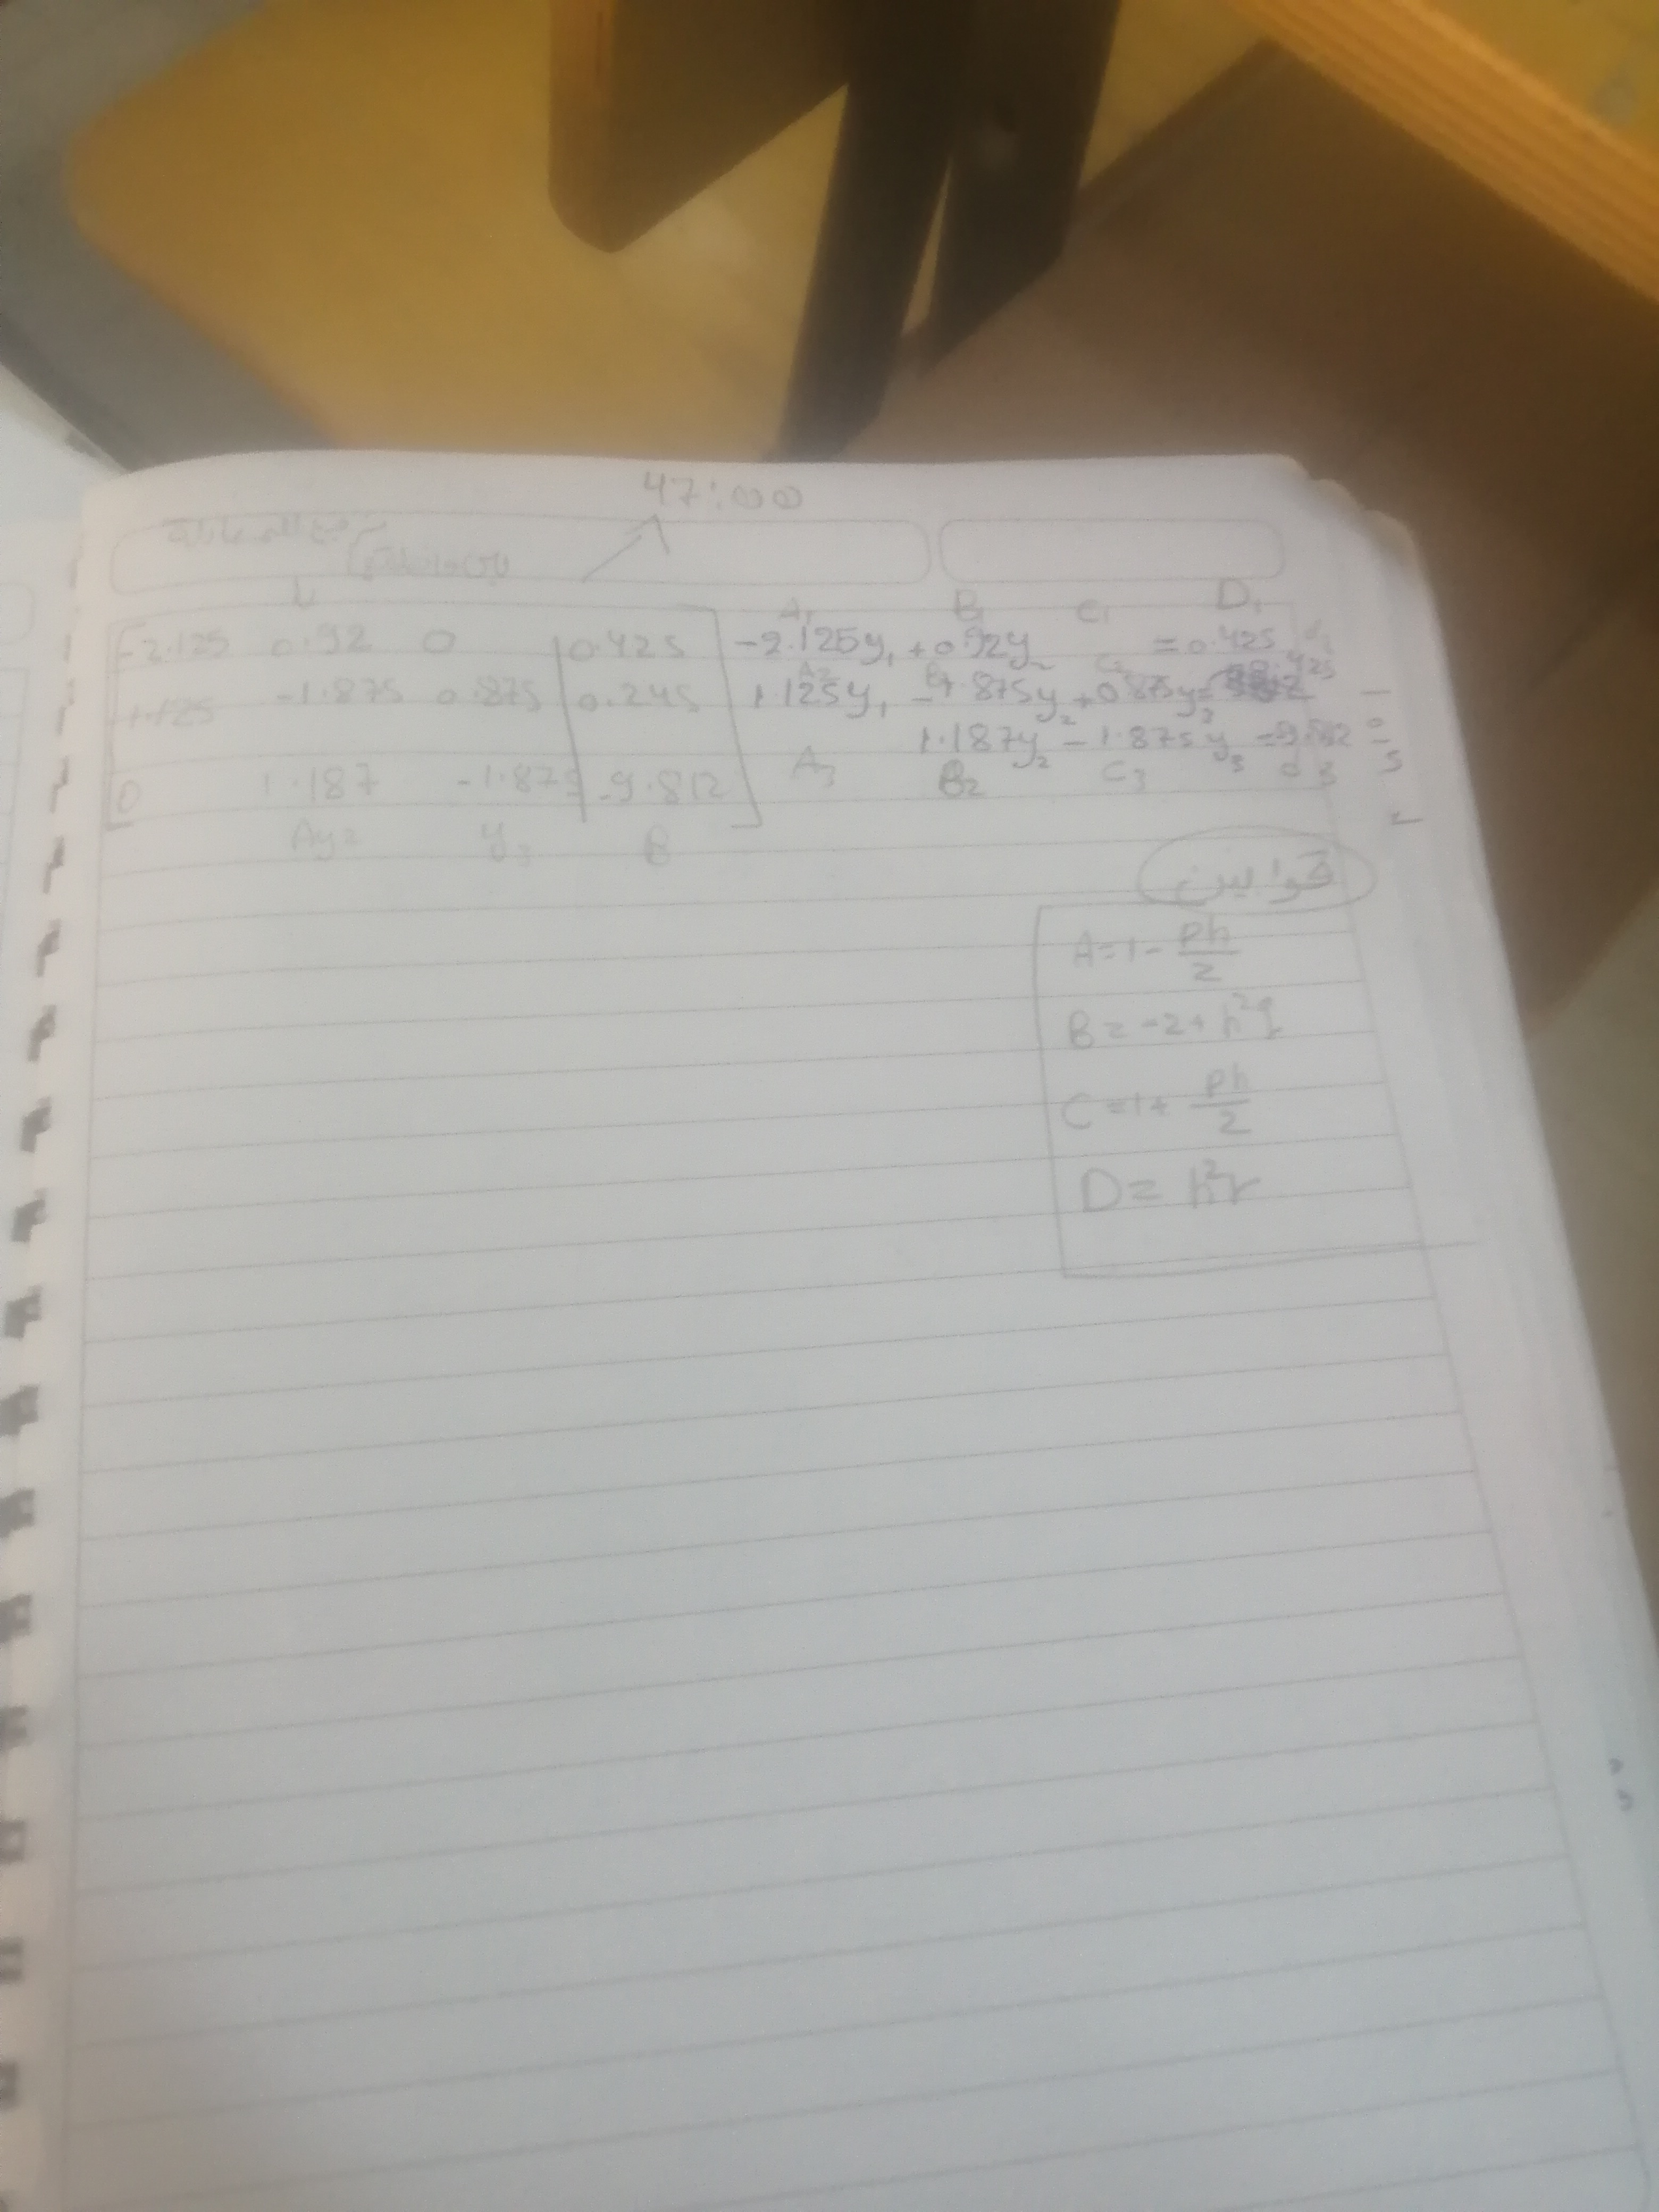 47:00
-2.125 0.92 0 0.425
1.125 -1.875 0.875 0.245
0 1.187 -1.875 -9.812
Ay2 y3 B
A1 B1 C1 D1
-2.125y1 + 0.92y2 = 0.425 d1
A2 B2 C2
1.125y1 - 1.875y2 + 0.875y3 =
1.187y2 - 1.875y3 =
A3 B2 C3 d3
قوانين
A = 1 - ph/2
B = -2 + h²q
C = 1 + ph/2
D = h²r